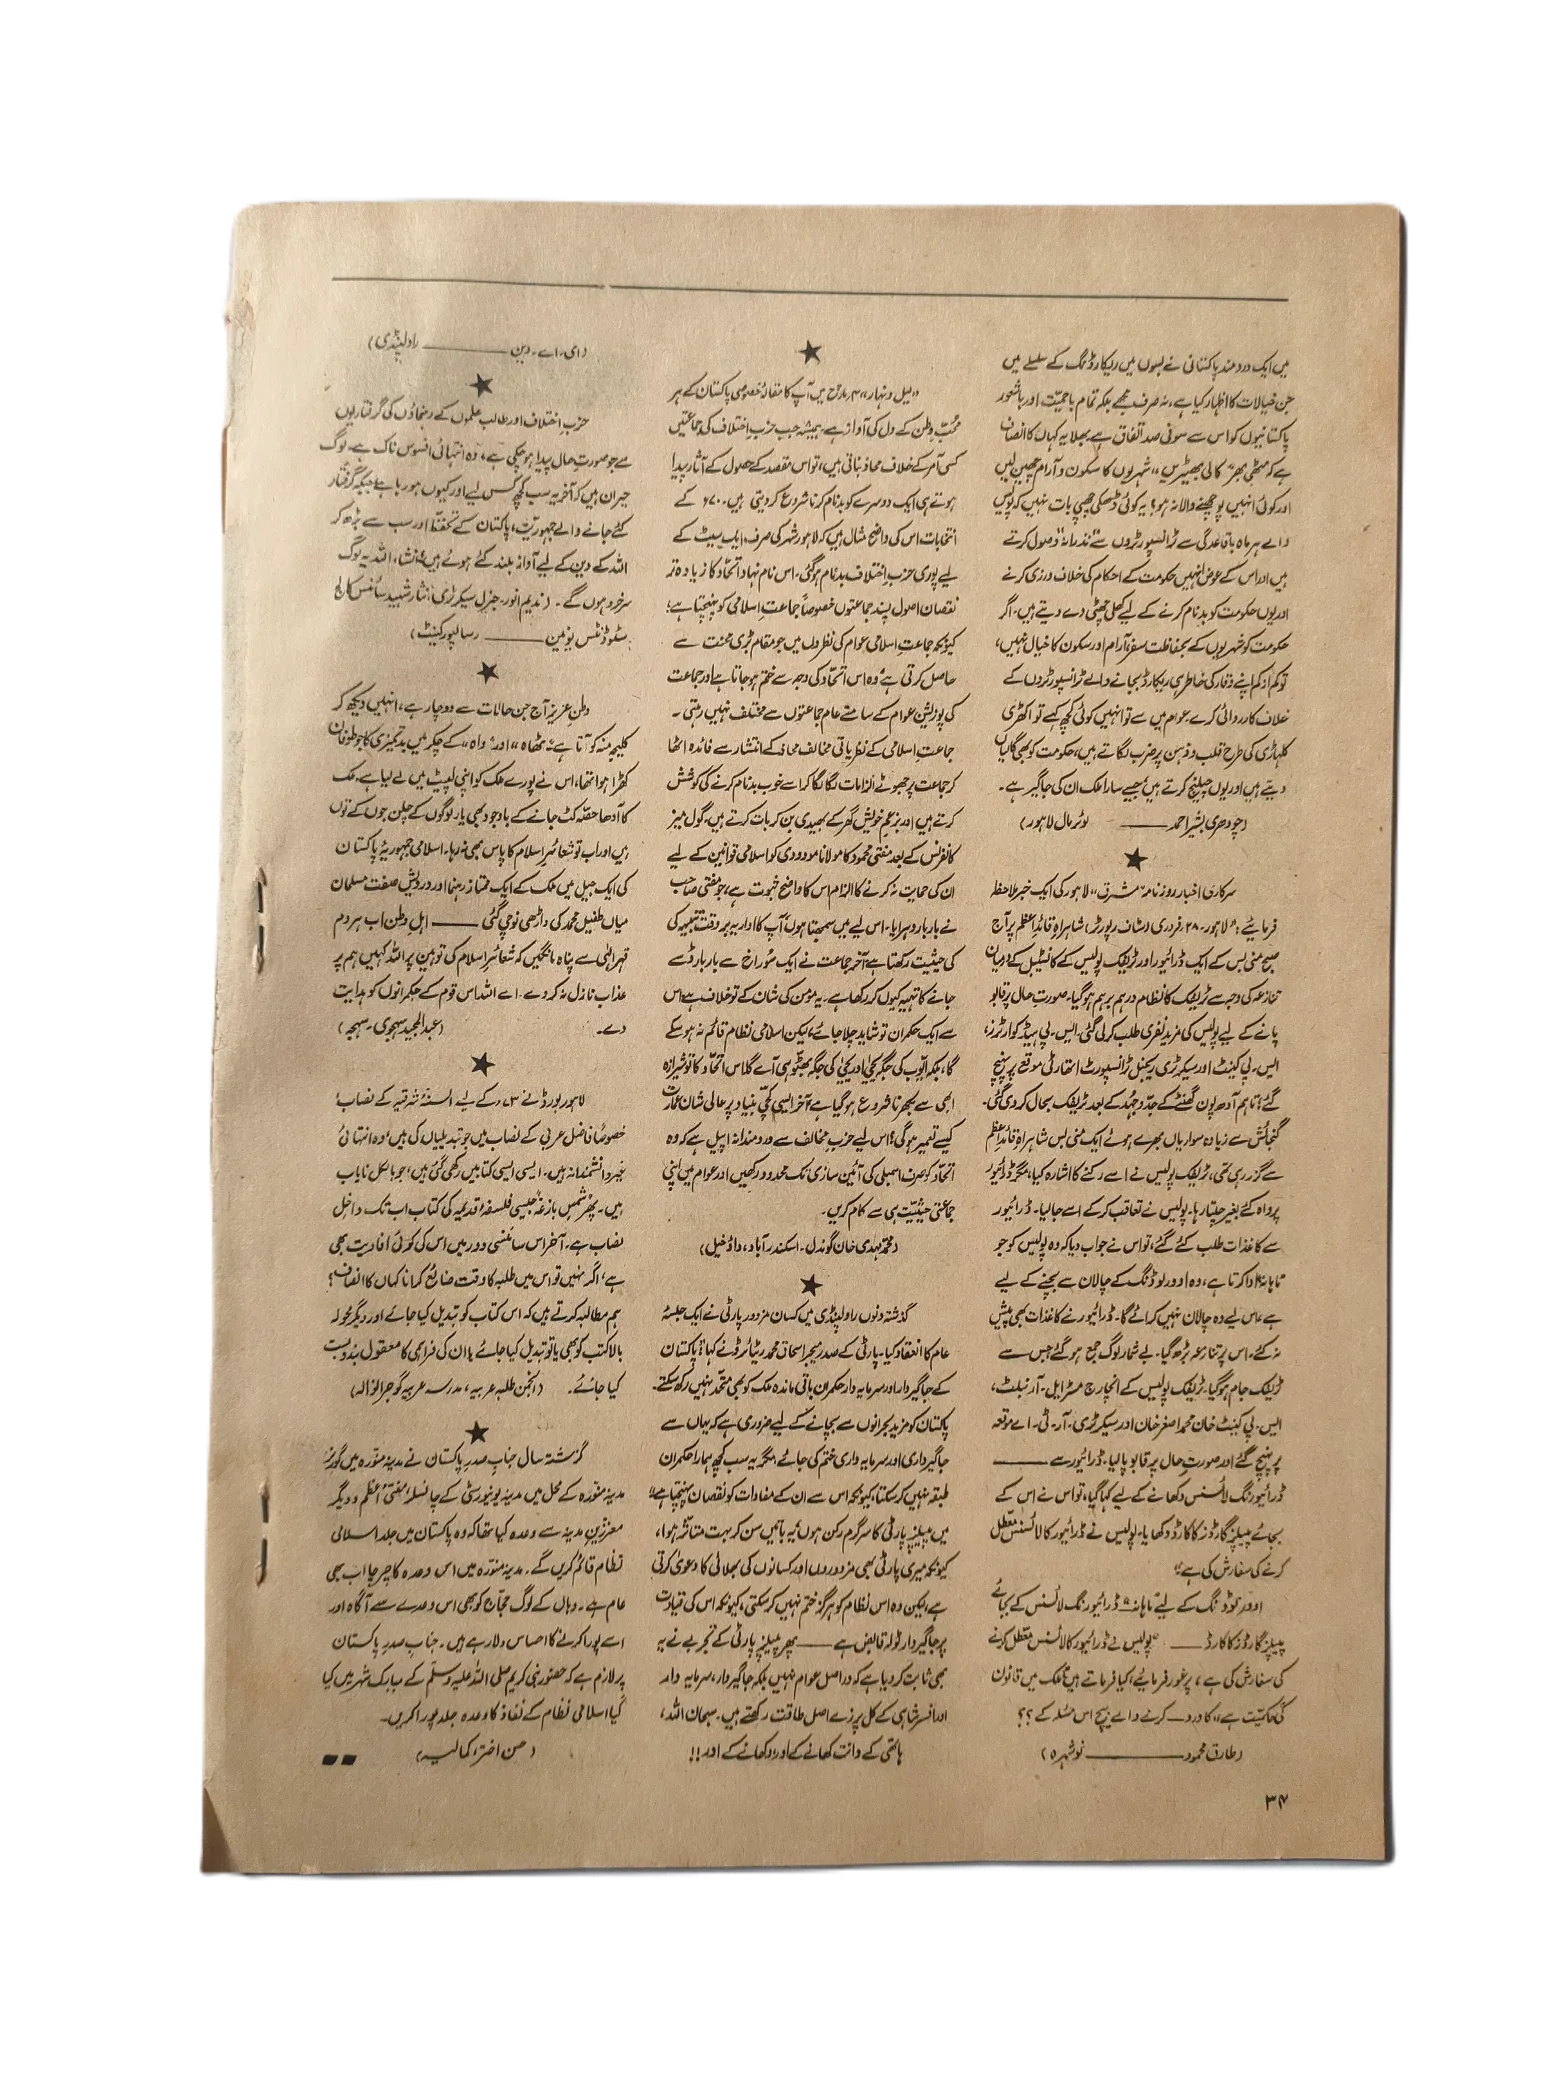 میں ایک دردمند پاکستانی نے بسوں میں ریکارڈنگ کے سلسلے میں
جن خیالات کا اظہار کیا ہے، نہ صرف مجھے بلکہ تمام باحمیت اور باشعور
پاکستانیوں کو اس سے سوفی صد اتفاق ہے بھلا یہ کہاں کا انصاف
ہے کہ مٹھی بھر "کالی بھیڑیں" شہریوں کا سکون و آرام چھین لیں
اور کوئی انہیں پوچھنے والا نہ ہو؟ یہ کوئی ڈھکی چھپی بات نہیں کہ پولیس
والے ہر ماہ باقاعدگی سے ٹرانسپورٹروں سے "نذرانہ" وصول کرتے
ہیں اور اس کے عوض انہیں حکومت کے احکام کی خلاف ورزی کرنے
اور یوں حکومت کو بدنام کرنے کے لیے کھلی چھٹی دے دیتے ہیں۔ اگر
حکومت کو شہریوں کے بحفاظت سفر، آرام اور سکون کا خیال نہیں،
تو کم از کم اپنے وقار کی خاطر ہی ریکارڈ بجانے والے ٹرانسپورٹروں کے
خلاف کارروائی کرے۔ عوام میں سے تو انہیں کوئی کچھ کہے تو اکھڑی
کلہاڑی کی طرح قلب و ذہن پر ضرب لگاتے ہیں، حکومت کو بھی گالیاں
دیتے ہیں اور یوں چیلنج کرتے ہیں جیسے سارا ملک ان کی جاگیر ہے۔
(چودھری بشیر احمد ——— لوئر مال لاہور)
★
سرکاری اخبار روزنامہ "مشرق" لاہور کی ایک خبر ملاحظہ
فرمایئے: "لاہور۔ ۲۸ فروری (سٹاف رپورٹر) شاہراہ قائداعظم پر آج
صبح منی بس کے ایک ڈرائیور اور ٹریفک پولیس کے کانسٹیبل کے درمیان
تنازعہ کی وجہ سے ٹریفک کا نظام درہم برہم ہو گیا۔ صورت حال پر قابو
پانے کے لیے پولیس کی مزید نفری طلب کرلی گئی۔ ایس۔ پی ہیڈ کوارٹرز،
ایس۔ پی کینٹ اور سیکرٹری ریجنل ٹرانسپورٹ اتھارٹی موقع پر پہنچ
گئے؛ تاہم آدھ پون گھنٹے کے جدوجہد کے بعد ٹریفک بحال کر دی گئی۔
گنجائش سے زیادہ سواریاں بھرے ہوئے ایک منی بس شاہراہ قائداعظم
سے گزر رہی تھی، ٹریفک پولیس نے اسے رکنے کا اشارہ کیا، مگر ڈرائیور
پرواہ کئے بغیر چلتا رہا۔ پولیس نے تعاقب کر کے اسے جا لیا۔ ڈرائیور
سے کاغذات طلب کئے گئے، تو اس نے جواب دیا کہ وہ پولیس کو جو
"ماہانہ" ادا کرتا ہے، وہ اوور لوڈنگ کے چالان سے بچنے کے لیے
ہے، اس لیے وہ چالان نہیں کرائے گا۔ ڈرائیور نے کاغذات بھی پیش
نہ کئے۔ اس پر تنازعہ بڑھ گیا۔ بے شمار لوگ جمع ہو گئے جس سے
ٹریفک جام ہو گیا۔ ٹریفک پولیس کے انچارج مسٹر ایل۔ آر نبلٹ،
ایس۔ پی کینٹ خان محمد اصغر خان اور سیکرٹری۔ آر۔ ٹی۔ اے موقعہ
پر پہنچ گئے اور صورت حال پر قابو پا لیا۔ ڈرائیور سے ———
ڈرائیورنگ لائسنس دکھانے کے لیے کہا گیا، تو اس نے اس کے
بجائے پیپلز گارڈز کا کارڈ دکھایا۔ پولیس نے ڈرائیور کا لائسنس معطل
کرنے کی سفارش کی ہے"
اوور لوڈنگ کے لیے "ماہانہ" ڈرائیورنگ لائسنس کے بجائے
پیپلز گارڈز کا کارڈ —— "پولیس نے ڈرائیور کا لائسنس معطل کرنے
کی سفارش کی ہے"، پر غور فرمایئے، کیا فرماتے ہیں "ملک میں قانون
کی حاکمیت ہے" کا ورد ـ کرنے والے بیچ اس مسئلہ کے ؟؟
(طارق محمود ——— نوشہرہ)
۳۴
★
"لیل و نہار" ۴ مارچ میں آپ کا مقالہ خصوصی پاکستان کے ہر
محب وطن کے دل کی آواز ہے۔ ہمیشہ جب حزب اختلاف کی جماعتیں
کسی آمر کے خلاف محاذ بناتی ہیں، تو اس مقصد کے حصول کے آثار پیدا
ہوتے ہی ایک دوسرے کو بدنام کرنا شروع کر دیتی ہیں۔ ۶۷۰ کے
انتخابات اس کی واضح مثال ہیں کہ لاہور شہر کی صرف ایک سیٹ کے
لیے پوری حزب اختلاف بدنام ہو گئی۔ اس نام نہاد اتحاد کا زیادہ تر
نقصان اصول پسند جماعتوں خصوصاً جماعت اسلامی کو پہنچتا ہے؛
کیونکہ جماعت اسلامی عوام کی نظروں میں جو مقام بڑی محنت سے
حاصل کرتی ہے، وہ اس اتحاد کی وجہ سے ختم ہو جاتا ہے اور جماعت
کی پوزیشن عوام کے سامنے عام جماعتوں سے مختلف نہیں رہتی۔
جماعت اسلامی کے نظریاتی مخالف محاذ کے انتشار سے فائدہ اٹھا
کر جماعت پر جھوٹے الزامات لگا لگا کر اسے خوب بدنام کرنے کی کوشش
کرتے ہیں اور بزعم خویش گھر کے بھیدی بن کر بات کرتے ہیں۔ گول میز
کانفرنس کے بعد مفتی محمود کا مولانا مودودی کو اسلامی قوانین کے لیے
ان کی حمایت نہ کرنے کا الزام اس کا واضح ثبوت ہے، جو مفتی صاحب
نے بار بار دہرایا۔ اس لیے میں سمجھتا ہوں آپ کا اداریہ بروقت تنبیہ کی
کی حیثیت رکھتا ہے۔ آخر جماعت نے ایک سوراخ سے بار بار ڈسے
جانے کا تہیہ کیوں کر رکھا ہے۔ یہ مومن کی شان کے تو خلاف ہے۔ اس
سے ایک حکمران تو شاید چلا جائے، لیکن اسلامی نظام قائم نہ ہو سکے
گا، بلکہ ایوب کی جگہ یحییٰ اور یحییٰ کی جگہ بھٹو ہی آئے گا۔ اس اتحاد کا تو شیرازہ
ابھی سے بکھرنا شروع ہو گیا ہے، آخر ایسی کچی بنیاد پر عالی شان عمارت
کیسے تعمیر ہو گی؟ اس لیے حزب مخالف سے دردمندانہ اپیل ہے کہ وہ
اتحاد کو صرف اسمبلی کی آئین سازی تک محدود رکھیں اور عوام میں اپنی
جماعتی حیثیت ہی سے کام کریں۔
(محمد مہدی خان گوندل۔ اسکندر آباد، داؤد خیل)
★
گذشتہ دنوں راولپنڈی میں کسان مزدور پارٹی نے ایک جلسہ
عام کا انعقاد کیا۔ پارٹی کے صدر میجر اسحاق محمد ریٹائرڈ نے کہا: "پاکستان
کے جاگیردار اور سرمایہ دار حکمران باقی ماندہ ملک کو بھی متحد نہیں رکھ سکتے۔
پاکستان کو مزید بحرانوں سے بچانے کے لیے ضروری ہے کہ یہاں سے
جاگیرداری اور سرمایہ داری ختم کی جائے، مگر یہ سب کچھ ہمارا حکمران
طبقہ نہیں کر سکتا، کیونکہ اس سے ان کے مفادات کو نقصان پہنچتا ہے"
میں پیپلز پارٹی کا سرگرم رکن ہوں، یہ باتیں سن کر بہت متاثر ہوا،
کیونکہ میری پارٹی بھی مزدوروں اور کسانوں کی بھلائی کا دعویٰ کرتی
ہے لیکن وہ اس نظام کو ہرگز ختم نہیں کر سکتی، کیونکہ اس کی قیادت
پر جاگیردار ٹولہ قابض ہے —— پھر پیپلز پارٹی کے تجربے نے یہ
بھی ثابت کر دیا ہے کہ دراصل عوام نہیں بلکہ جاگیردار، سرمایہ دار
اور افسر شاہی کے کل پرزے اصل طاقت رکھتے ہیں۔ سبحان اللہ،
ہاتھی کے دانت کھانے کے اور، دکھانے کے اور!!
(ای۔ اے۔ دین ——— راولپنڈی)
★
حزب اختلاف اور طالب علموں کے رہنماؤں کی گرفتاریوں
سے جو صورت حال پیدا ہو چکی ہے، وہ انتہائی افسوس ناک ہے۔ لوگ
حیران ہیں کہ آخر یہ سب کچھ کس لیے اور کیوں ہو رہا ہے؛ جبکہ گرفتار
کئے جانے والے جمہوریت، پاکستان کے تحفظ اور سب سے بڑھ کر
اللہ کے دین کے لیے آواز بلند کئے ہوئے ہیں؛ انشاء اللہ یہ لوگ
سرخرو ہوں گے۔ (ندیم انور۔ جنرل سیکرٹری نثار شہید سائنس کالج
سٹوڈنٹس یونین ——— رسالپور کینٹ)
★
وطن عزیز آج جن حالات سے دوچار ہے، انہیں دیکھ کر
کلیجہ منہ کو آتا ہے "ٹھاہ" اور "واہ" کے چکر میں بدتمیزی کا جو طوفان
کھڑا ہوا تھا، اس نے پورے ملک کو اپنی لپیٹ میں لے لیا ہے۔ ملک
کا آدھا حصہ کٹ جانے کے باوجود بھی یار لوگوں کے چلن جوں کے توں
ہیں اور اب تو شعائر اسلام کا پاس بھی نہ رہا۔ اسلامی جمہوریہ پاکستان
کی ایک جیل میں ملک کے ایک ممتاز رہنما اور درویش صفت مسلمان
میاں طفیل محمد کی داڑھی نوچی گئی ——— اہل وطن اب ہر دم
قہر الٰہی سے پناہ مانگیں کہ شعائر اسلام کی توہین پر اللہ کہیں ہم پر
عذاب نازل نہ کر دے۔ اے اللہ اس قوم کے حکمرانوں کو ہدایت
دے۔ (عبدالمجید سہجوی۔ سہجہ)
★
لاہور بورڈ نے ۷۳ء کے لیے السنہ شرقیہ کے نصاب
خصوصاً فاضل عربی کے نصاب میں جو تبدیلیاں کی ہیں، وہ انتہائی
غیر دانشمندانہ ہیں۔ ایسی ایسی کتابیں رکھی گئی ہیں، جو بالکل نایاب
ہیں۔ پھر شمس بازغہ جیسی فلسفہ قدیمہ کی کتاب اب تک داخل
نصاب ہے۔ آخر اس سائنسی دور میں اس کی کوئی افادیت بھی
ہے، اگر نہیں تو اس میں طلبہ کا وقت ضائع کرانا کہاں کا انصاف؟
ہم مطالبہ کرتے ہیں کہ اس کتاب کو تبدیل کیا جائے اور دیگر محولہ
بالا کتب کو بھی یا تو تبدیل کیا جائے یا ان کی فراہمی کا معقول بندوبست
کیا جائے۔ (انجمن طلبہ عربیہ، مدرسہ عربیہ گوجرانوالہ)
★
گزشتہ سال جناب صدر پاکستان نے مدینہ منورہ میں گورنر
مدینہ منورہ کے محل میں مدینہ یونیورسٹی کے چانسلر، مفتی اعظم و دیگر
معززین مدینہ سے وعدہ کیا تھا کہ وہ پاکستان میں جلد اسلامی
نظام قائم کریں گے۔ مدینہ منورہ میں اس وعدہ کا چرچا اب بھی
عام ہے۔ وہاں کے لوگ حجاج کو بھی اس وعدے سے آگاہ اور
اسے پورا کرنے کا احساس دلا رہے ہیں۔ جناب صدر پاکستان
پر لازم ہے کہ حضور نبی کریم صلی اللہ علیہ وسلم کے مبارک شہر میں کیا
گیا اسلامی نظام کے نفاذ کا وعدہ جلد پورا کریں۔
(حسن اختر، کمالیہ)